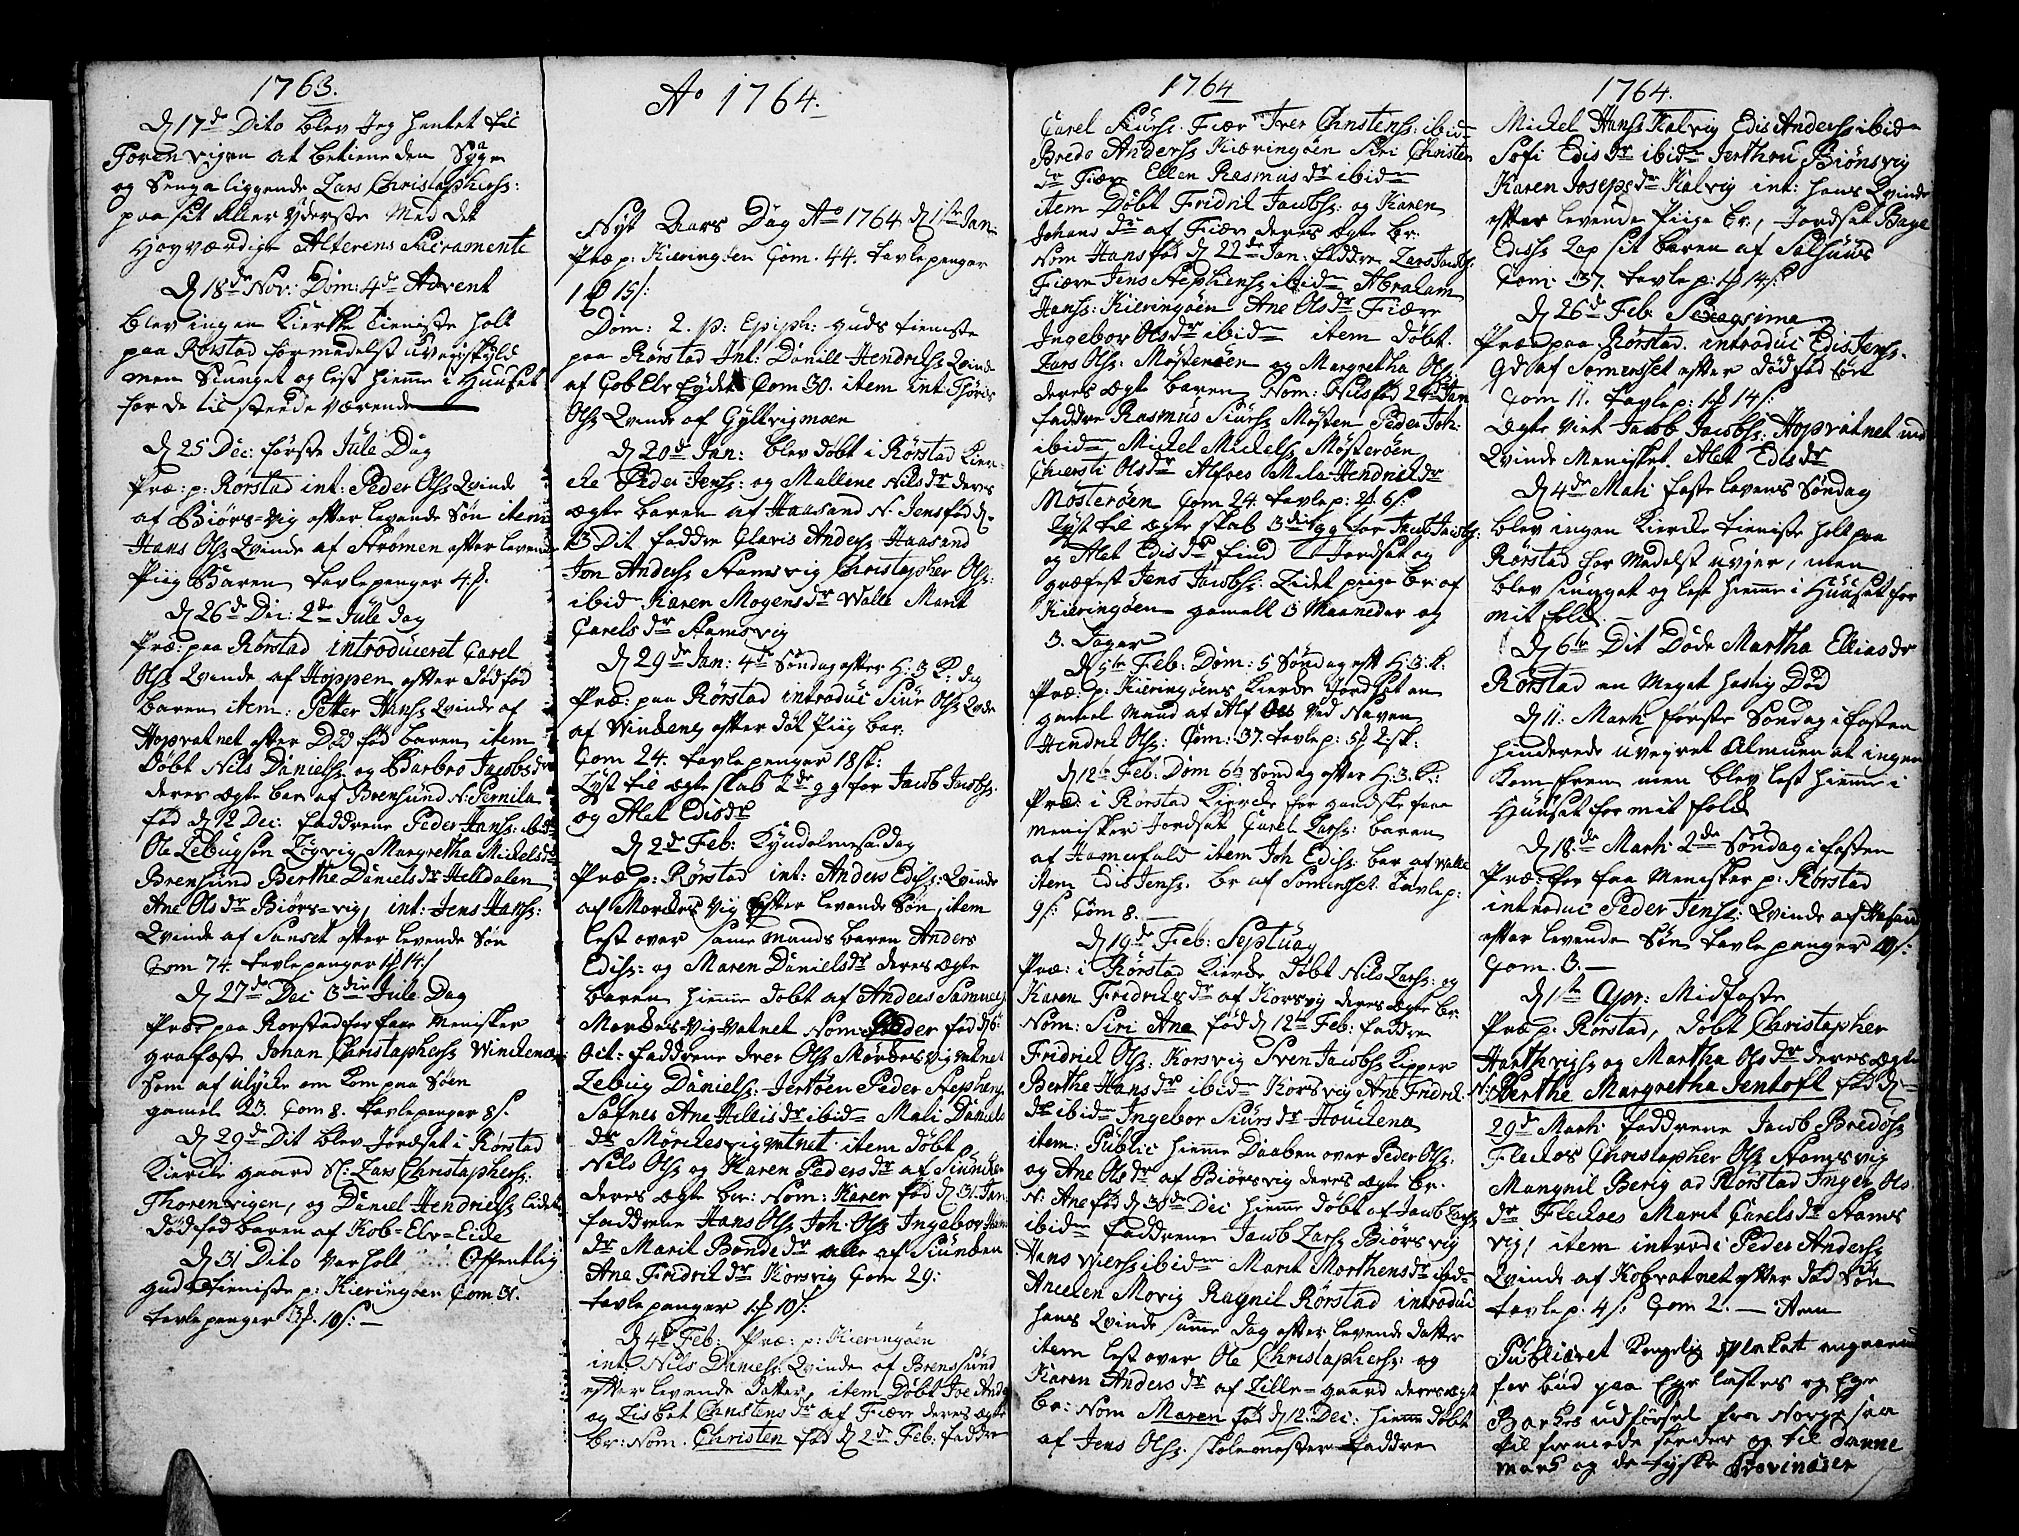 1763.
D 17de Dito blev Jeg hentet til
Torenvigen at betiene den Syge
og Senga liggende Lars Christophersz:
paa sit Aller Yderste Med det
Høyværdige Alterens Sacramente
D 18de Nov: Dom: 4de Advent
blev ingen Kierke tieniste holt
paa Rørstad formedelst uveirskyld
men Siunget og lest hieme i Huuset
for de til stæde værende
D 25 Dec: første Jule Dag
Præ: p: Rørstad int: Peder Olsz Qvinde
af Biørs=vig efter levende Søn item
Hans Olsz Qvinde af Strømen efter levende
Piig Baren tavlepenger 4
D 26de Dec: 2de Jule dag
Præ: paa Rørstad introduceret Carel
Olsz Qvinde af Hoppen efter dødfød
baren item: Petter Hansz Qvinde af
Hopvatnet efter Død fød baren item
Døbt Nils Danielsz og Barbro Jacobsdr
deres ægte bar af Brensund N: Pernila
fød D 2 Dec: faddrene Peder Hansz: ibid
Ole Zebugson Løgvig Margretha Mickelsdr
Brensund Berthe Danielsdr Helldalen
Ane Olsdr Biørs=vig, int: Jens Hansz:
Qvinde af Sanset efter levende Søn
Com 74. tavlepenger 14
D 27de Dec 3die Jule Dag
Præ: paa Rørstad for faae Menisker
græfæste Johan Christophersz Windenes
Som af ulycke om kom paa Søen
gamel 23. Com 8. tavlepenger 8
D 29de Dit blev Jordset i Rørstad
Kierke gaard Sl: Lars Christophersz:
Thorenvigen, og Daniel Hendricksz lidet
dødfød baren af Kob=Elv=Eide
D 31 Dito var holt Offentlig
guds Tieniste p: Kieringøen Com 31.
tavlepenger 3 10
Ao 1764.
Nyt Aars Dag Ao 1764 D 1ste Jan
Præ p: Kieringøen Com. 44. tavlepenger
1 15
Dom: 2. p: Epiph: guds tieneste
paa Rørstad Int: Daniell Hendricksz Qvinde
af CobElv Eydet Com 30. item int: Thøris
Olsz Qvinde af Gyltvigmoen
D 20de Jan: blev døbt i Rørstad Kier=
cke Peder Jensz: og Mallene Nilsdr deres
ægte baren af Haasand N. Jens fød D.
13 Dit faddre Claris Andersz Haasand
Jon Andersz Stamsvig Christopher Olsz:
ibid Karen Mogensdr Walle Marit
Carelsdr Stamsvig
D 29de Jan: 4de Søndag efter H: 3 K: dag
Præ: paa Rørstad introduc Siur Olsz Qvde
af Windenes efter døt Piig bar:
Com 24. tavlepenger 18
Lyst til ægteskab 2de gg for Jacob Jacobsz
og Alet Edisdr
D 2de Feb: Kyndelmesse dag
Præ p: Rørstad int: Anders Edisz: Qvinde
af Morckesvig Efter levende Søn, item
lest over same mands baren Anders
Edisz: og Maren Danielsdr deres ægte
baren hieme døbt af Anders Samuels
Morckes-Vig-vatnet Nom: Peder fød D 6
Oct: faddrene Iver Olsz Mørckesvig vatnet
Zebug Danielsz: Jertøen Peder Stephensz
Søfnes Ane Hellisdr ibid Mali Daniels
dr Mørckesvig vatnet item døbt
Nils Olsz og Karen Pedersdr af Siunden
deres ægte bar: Nom: Karen fød D 31. Jan
faddrene Hans Olsz Joh: Olsz Ingebor Hans
dr Marit Bendsdr alle af Siunden
Ane Fridricksdr Korsvig Com 29:
tavlepenger 1 10
D 4de Feb: Præ: p: Kieringøen
int: Nils Danielsz: Qvinde af Brensund
efter levende datter, item Døbt Joe Andersz
og Lisbet Christensdr af Fiære deres ægte
br: Nom. Christen fød D 2de Feb: faddre
1764
Carel Siursz. Fiær Iver Christensz: ibid
Bredo Andersz Kieringøen Siri Christen
dr Fiære Ellen Rasmusdr ibid
item Døbt Fridrik Jacobsz: og Karen
Johansdr af Fiær deres ægte br:
Nom Hans fød D 22de Jan: faddre Lars Jacobsz:
Fiære Jens Stephensz ibid Abraham
Hansz: Kieringøen Ane Olsdr Fiære
Ingebor Olsdr ibid item døbt
Lars Olsz: Møsterøen og Margretha Olsdr
deres ægte baren Nom: Nils fød 24de Jan
faddre Rasmus Siursz Møsten Peder Joh:
ibid Mickel Mickelsz Møsterøen
Chiersti Olsdr Alfoes Mila Hendriksdr
Møsterøen Com 24. tavlep: 2 6
Lyst til ægteskab 3die gg for Jacob Jacobsz:
og Alet Edisdr find Jordsat og
græfest Jens Jacobsz: Lidet piige br: af
Kieringøen gamelt 3 Maaneder og
3. Dager
D 5te Feb: Dom: 5 Søndag eft H. 3. K.
Præ: p: Kieringøens Kierke Jordsat en
gamel mand af Alfoes ved Naven
Hendrik Olsz: Com: 37. tavlep: 5 2sk:
D 12te Feb: Dom 6te Søndag efter H: 3. K:
Præ: i Rørstad Kierke for gandske faae
menisker Jordsat Carel Larsz: baren
af Hamerfald item Joh Edisz: bar af Walle
item Edis Jensz. br af Somerset. tavlep:
9 Com 8.
D 19de Feb: Septuag
Præ: i Rørstad Kierke døbt Nils Larsz: og
Karen Fridriksdr af Korsvig deres ægte br:
Nom: Siri Ane fød D 12te Feb: faddre
Fridrick Olsz: Korsvig Sven Jacobsz Kipper
Berthe Hansdr ibid Korsvig Ane Fridrik
dr ibid Ingebor Siursdr Houdena
item: Public hieme Daaben over Peder Olsz:
og Ane Olsdr af Biørsvig deres ægte br.
N: Ane fød D 30de Dec hieme døbt af Jacob Larsz
ibid faddrene Jacob Larsz Biørsvig
Hans ibid Marit Morthensdr ibid
Anelen Movig Ragnil Rørstad introduc
hans Qvinde same dag efter levende datter
item lest over Ole Christophersz: og
Karen Andersdr af Lille=gaard deres ægte
br: Nom Maren fød D 12. Dec: hieme døbt
af Jens Olsz: skolemester faddre
1764.
Mickel Hansz Kalvig Edis Andersz ibid
Sofi Edisdr ibid Jerthru Biønsvig
Karen Josepsdr Kalvig int: hans Qvinde
efter levende Piige br, Jordsat Baye
Edisz Lap sit baren af Salhuus
Com 37. tavlep: 1 14
D 26de Feb Sexagsima
Præ: paa Rørstad. introduc Edis Jensz.
Qd af Somersset efter dødfød sørt
Com 11. tavlep: 1 14
Ægte Viet Jacob Jacobsz: Hopvatnet med
Qvinde Menisket. Alet Edisdr
D 4de Marti faste lavens Søndag
blev ingen Kierke tieniste holt paa
Rørstad for Medelst uvejer, men
blev siunget og lest hieme i Huuset for
mit folk.
D 6te Dit døde Martha Elliasdr
Rørstad en Meget hastig Død
D 11. Marti første Søndag i fasten
hinderede uveyret Almuen at ingen
kom frem men blev lest hieme i
Huuset for mit folk
D 18de Marti 2de Søndag i fasten
Præ: for faa Menisker p: Rørstad
introduc Peder Jensz: Qvinde af Haasand
efter levende Søn tavlepenger 10
Com. 3.
D 1te Apr: Midfaste
Præ p: Rørstad, døbt Christopher
Harthvigsz og Martha Olsdr deres ægte
N: Berthe Margretha Jentoft fød D
29de Marti faddrene Jacob Bredosz
Fleckos Christopher Olsz Stamsvig
Mangnil Berig ad Rørstad Inger Ols
dr Fleckoes Marit Carelsdr Stams
vig, item introd: Peder Andersz
Qvinde af Kobvatnet efter død Søn
tavlep: 4 Com 2. Item
Publiceret Kongelig Plakat angaaende
for bud paa Ege lastes og Ege
Barkes udførsel fra Norge saa
til fremede steder og til Danne
mark og de tyske Provincier